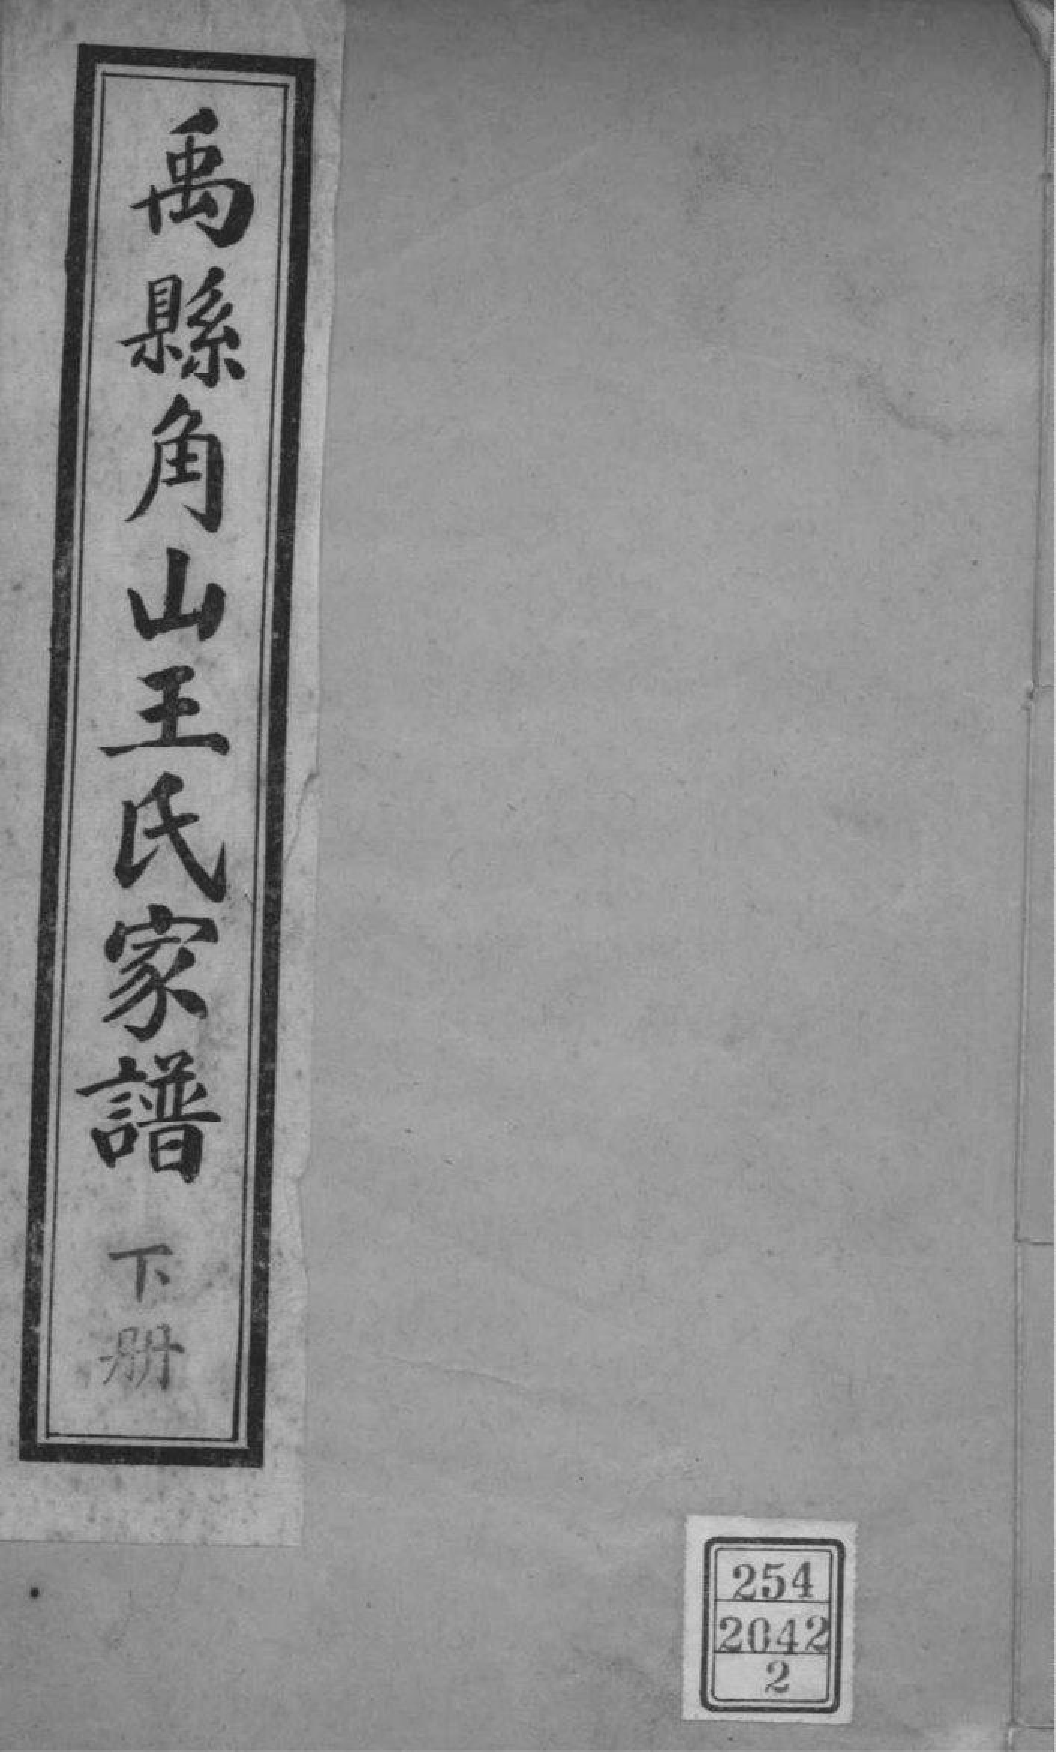 禹縣角山王氏家譜
下册
254
2042
2